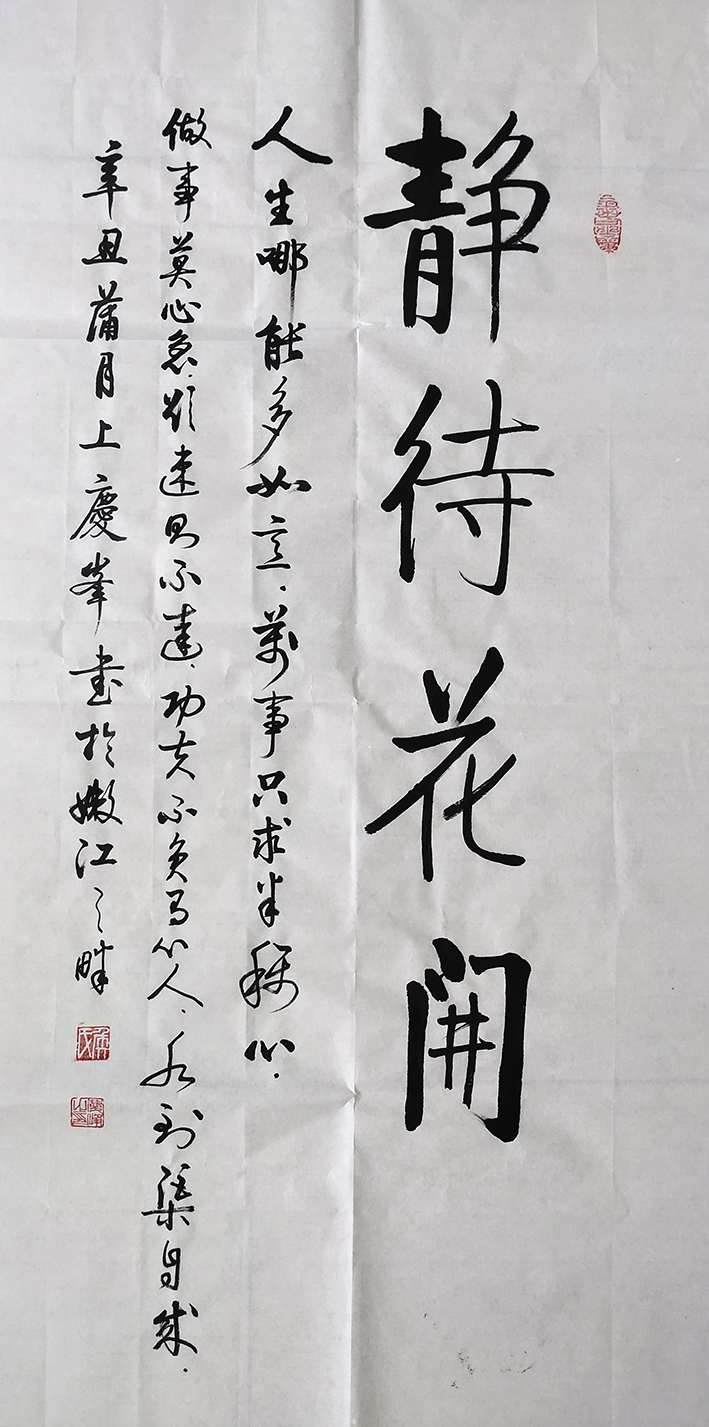 静待花開
人生哪能多如意、萬事只求半稱心、
做事莫心急、欲速則不達、功夫不負有心人、水到渠自成、
辛丑蒲月上慶峯書於嫩江之畔